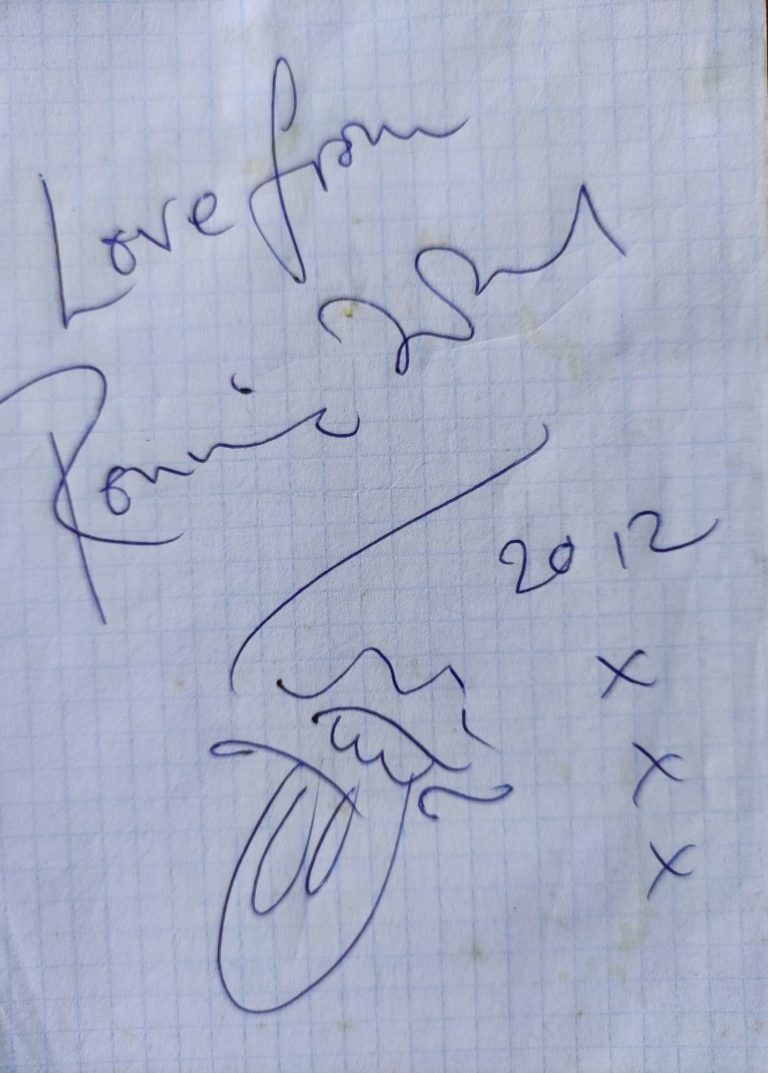 Love from
Ronnie
2012
x
x
x